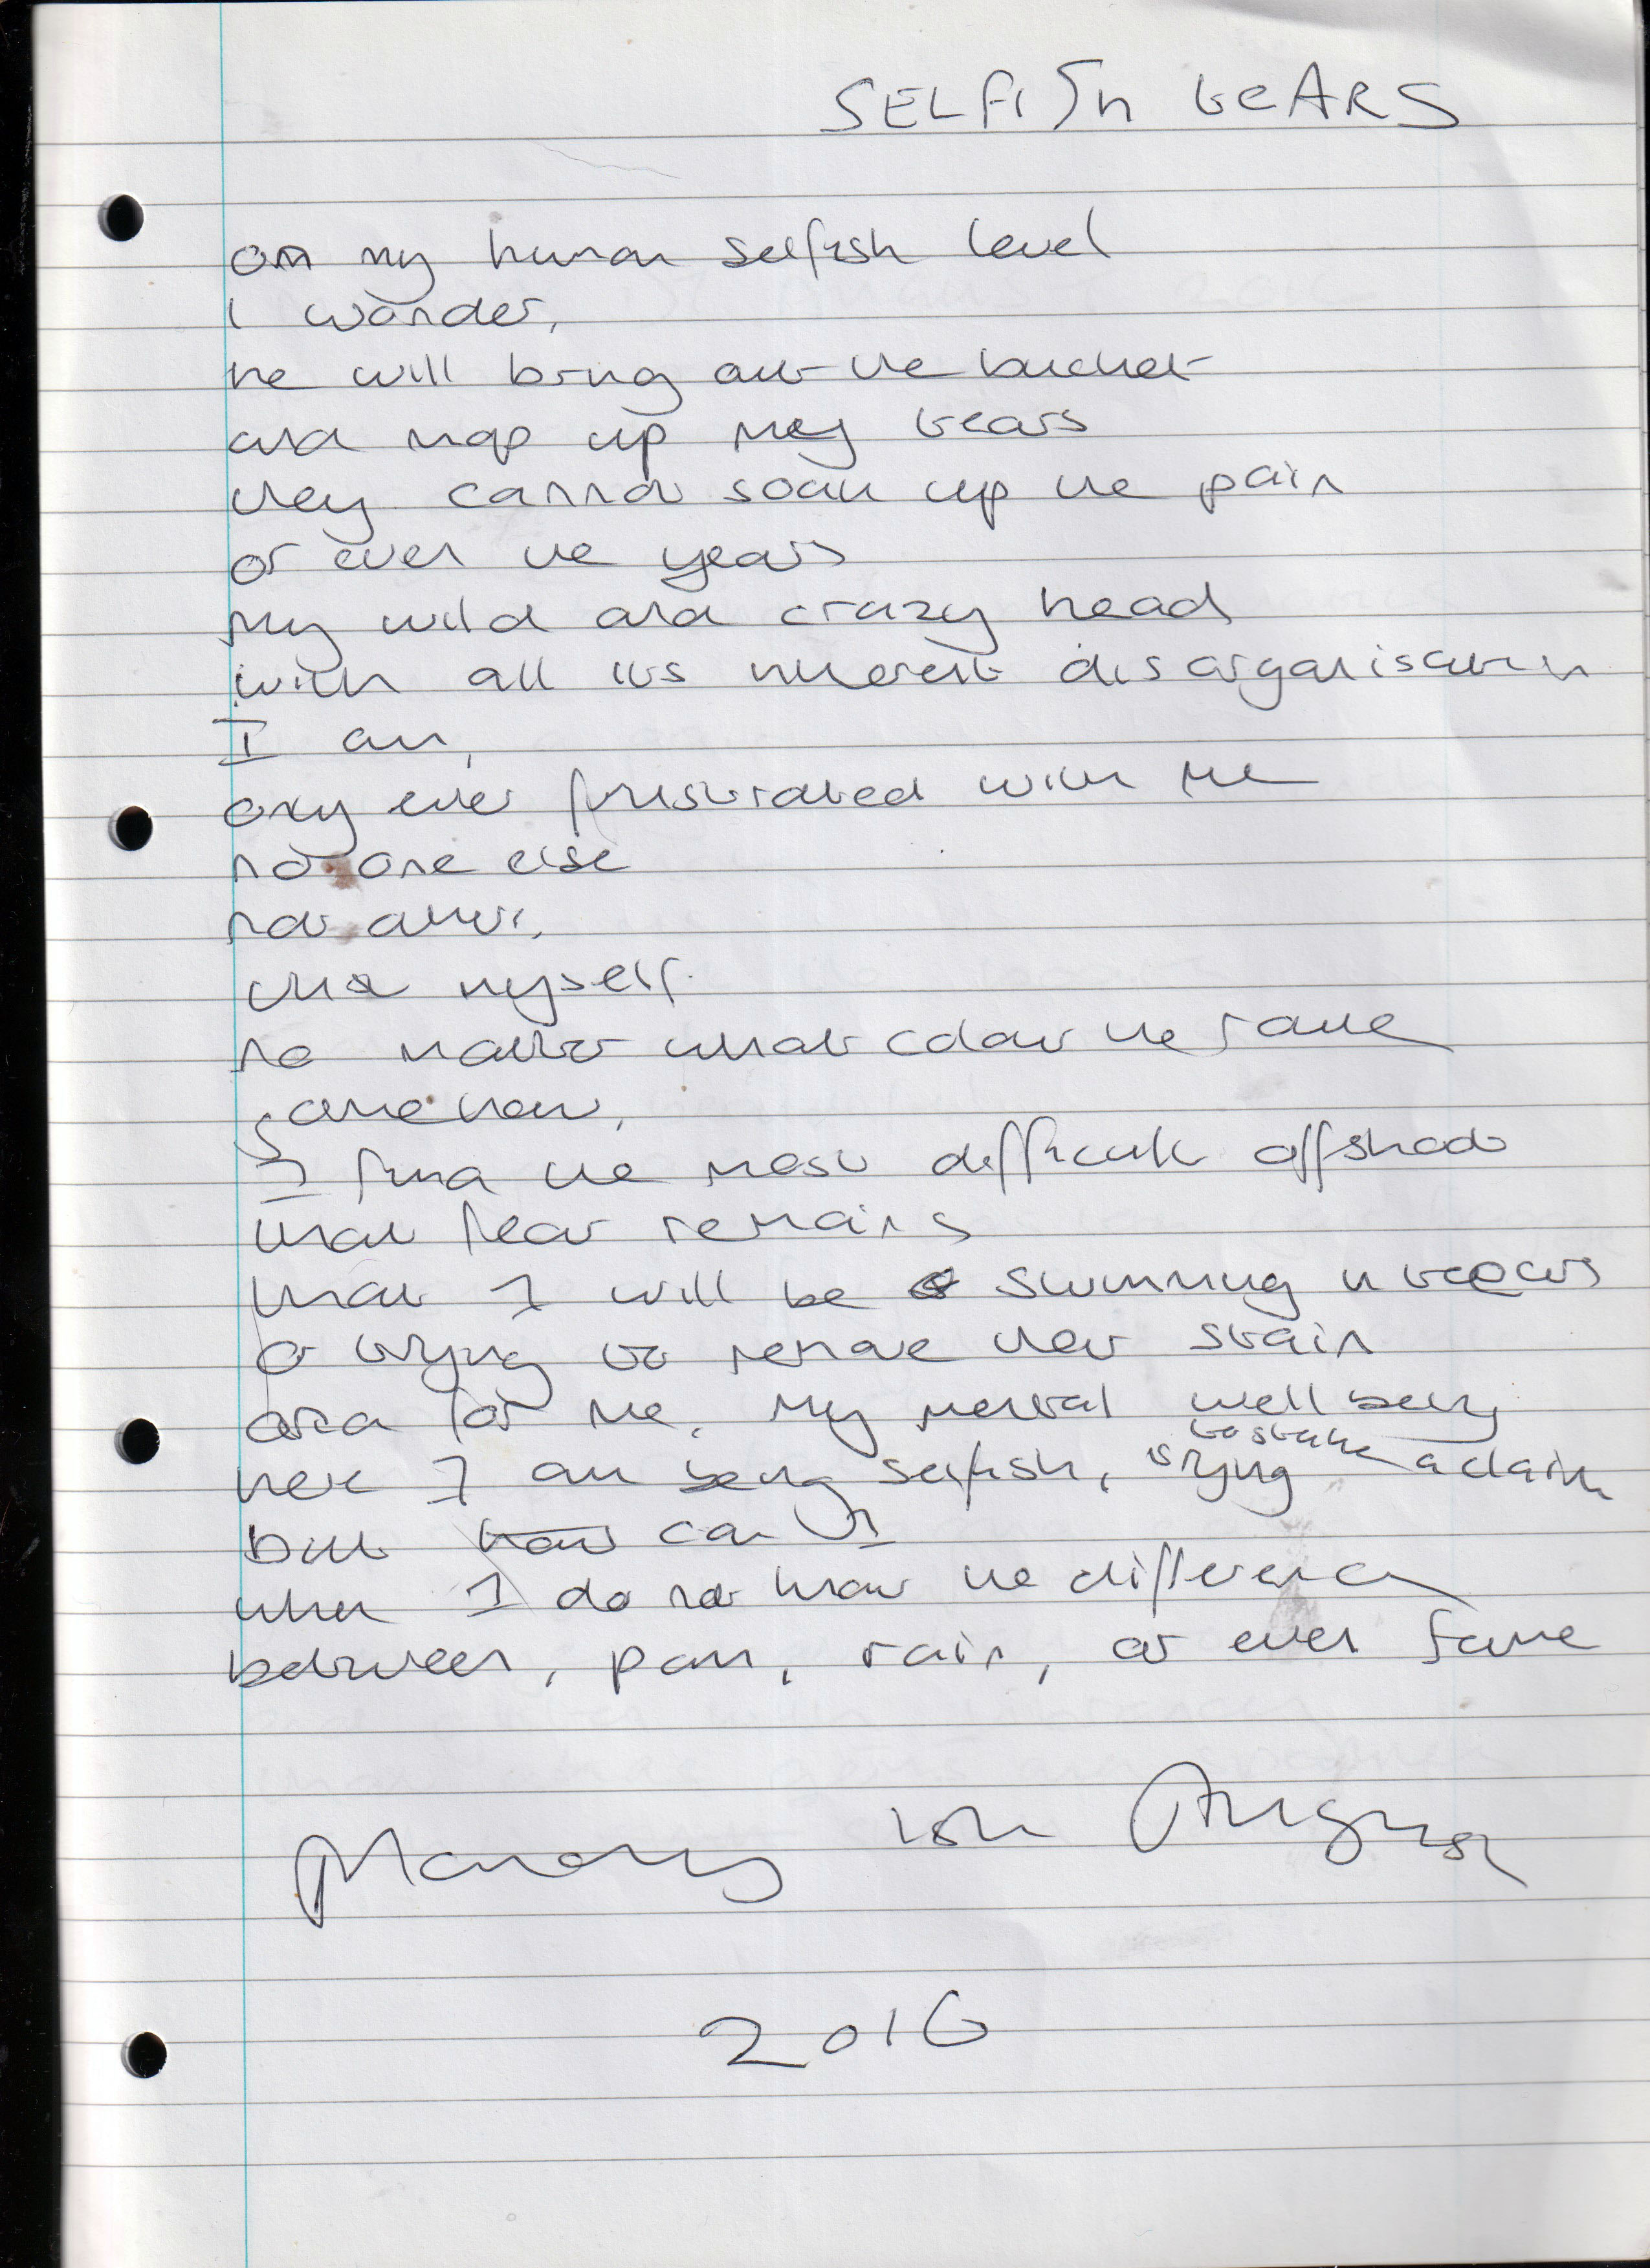 SELFISH TEARS
on my human selfish level
I wonder,
he will bring out the bucket
and mop up my tears
they cannot soak up the pain
or even the years
my wild and crazy head
with all its inherent disorganisation
I am,
only ever frustrated with me
no one else
not
myself.
no matter what colour the
somehow,
I find the most difficult offshoot
that fear remains
that I will be swimming in tears
or trying to remove their stain
and for me, my mental well being
here I am being selfish, trying to stake a claim
but how can I
when I do not know the difference
between, pain, rain, or even fame
2016